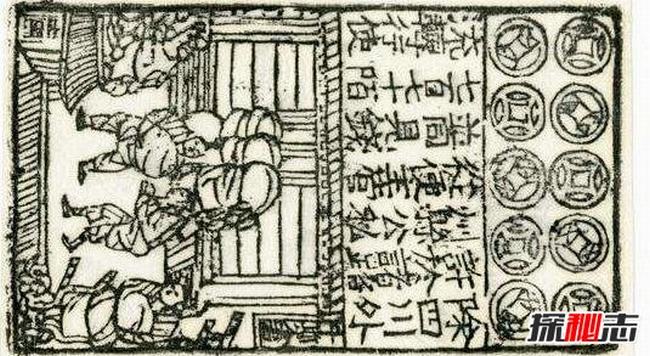 除四川外
許於諸路
州縣公私
從便主管
並同見錢
七百七十陌
流轉行使
探秘志